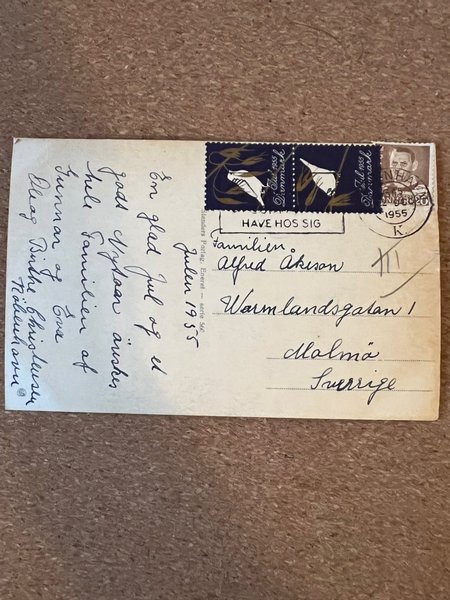 Jul 1955
Danmark
Jul 1955
Danmark
1955
K
HAVE HOS SIG
Julen 1955
En glad Jul og et
godt Nytaar ønskes
hele Familien af
Eva
Gunnar og
Birthe Christensen
København
Eneret — serie 560
Familien
Alfred Åkeson
Warmlandsgatan 1
Malmö
Sverrige